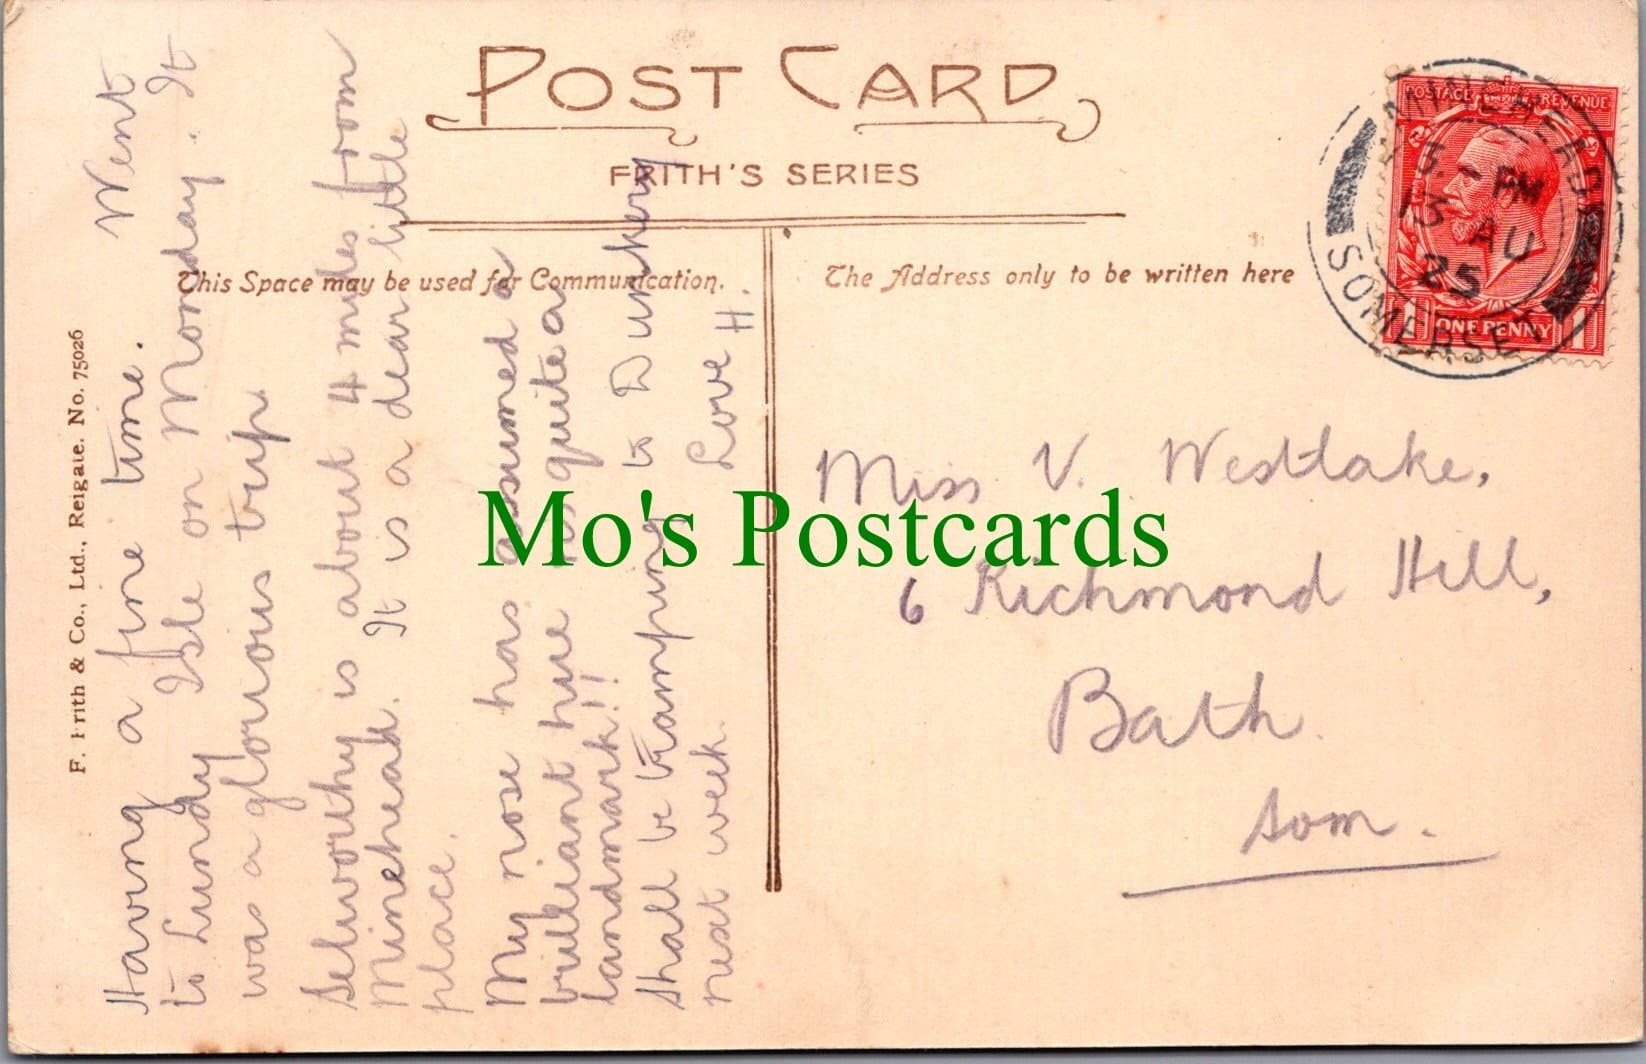 POST CARD
FRITH'S SERIES
This Space may be used for Communication.
The Address only to be written here
F. Frith & Co., Ltd., Reigate. No. 75026
Having a fine time. Went
to Lundy Isle on Monday. It
was a glorious trip.
Selworthy is about 4 miles from
Minehead. It is a dear little
place.
My nose has assumed a
brilliant hue & is quite a
landmark!!
Shall be tramping to Dunkery
next week.
Love H.
Miss V. Westlake,
6 Richmond Hill,
Bath.
Som.
POSTAGE REVENUE
ONE PENNY
MINEHEAD
5 - PM
13 AU
25
SOMERSET
Mo's Postcards